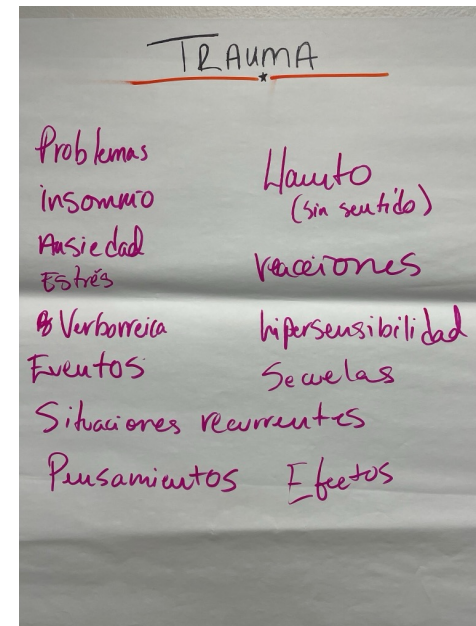 TRAUMA
Problemas
insomnio
Ansiedad
Estrés
Verborreica
Eventos
Llanto
(sin sentido)
reacciones
hipersensibilidad
Secuelas
Situaciones recurrentes
Pensamientos Efectos